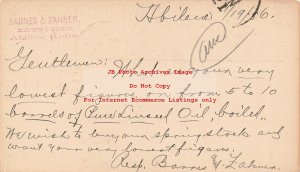 BARNES & ZAHNER,
Abilene 1/19/06.
Gentlemen: What are your very
lowest figures on from 5 to 10
barrels of Pure Linseed Oil, boiled.
We wish to buy our spring stock and
want your very lowest figures.
Resp. Barnes & Zahner.
JB Photo Archives Image
Do Not Copy
For Internet Ecommerce Listings only